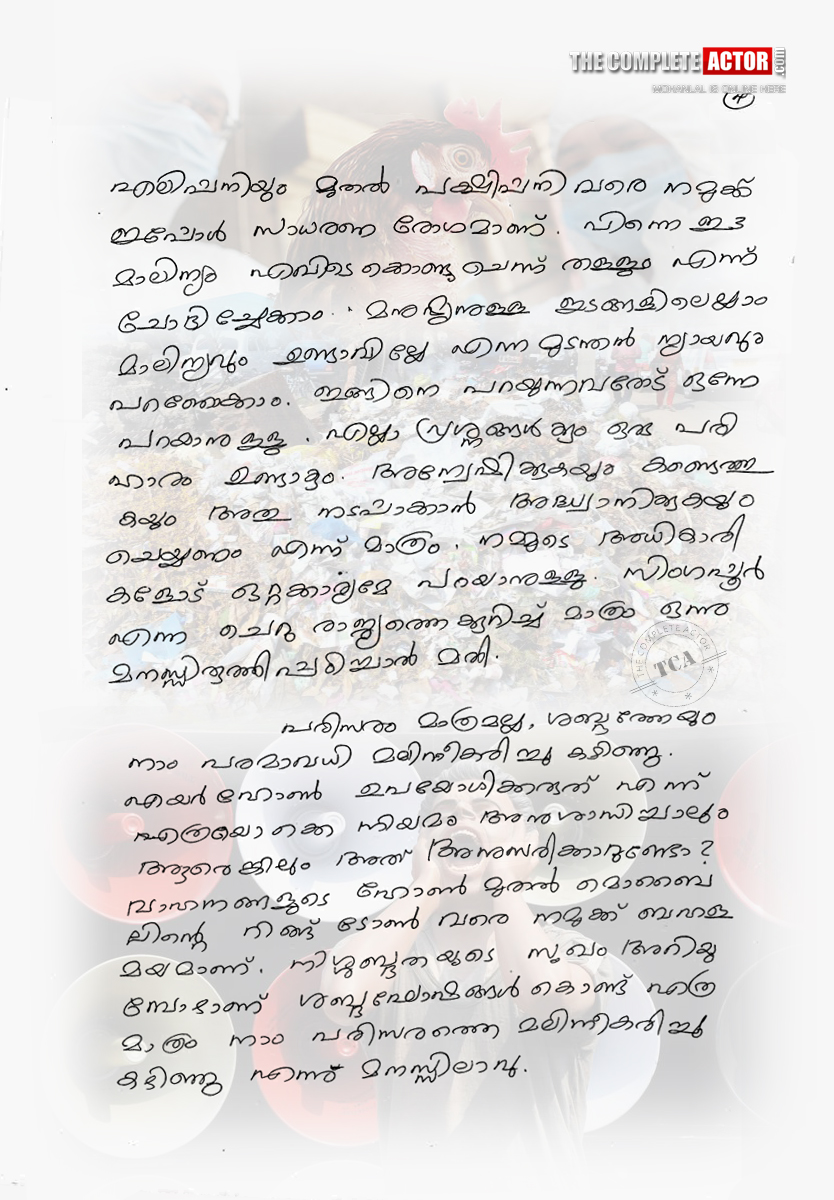 THE COMPLETE ACTOR .com
MOHANLAL IS ONLINE HERE
എലിപ്പനിയും മുതൽ പക്ഷിപ്പനി വരെ നമുക്ക്
ഇപ്പോൾ സാധരണ രോഗമാണ്. പിന്നെ ഇൗ
മാലിന്യം എവിടെ കൊണ്ടു ചെന്ന് തള്ളും എന്ന്
ചോദിച്ചേക്കാം. മനുഷ്യനുള്ള ഇടങ്ങളിലെല്ലാം
മാലിന്യവും ഉണ്ടാവില്ലേ എന്ന മുടന്തൻ ന്യായവും
പറഞ്ഞേക്കാം. ഇങ്ങിനെ പറയുന്നവരോട് ഒന്നേ
പറയാനുള്ളൂ. എല്ലാ പ്രശ്നങ്ങൾക്കും ഒരു പരി
ഹാരം ഉണ്ടാകും. അന്വേഷിക്കുകയും കണ്ടെത്തു
കയും അതു നടപ്പാക്കാൻ അദ്ധ്വാനിക്കുകയും
ചെയ്യണം എന്ന് മാത്രം. നമ്മുടെ അധികാരി
കളോട് ഒറ്റക്കാര്യമേ പറയാനുള്ളൂ. സിംഗപ്പൂർ
എന്ന ചെറു രാജ്യത്തെക്കുറിച്ച് മാത്രം ഒന്നു
മനസ്സിരുത്തി പഠിച്ചാൽ മതി.
THE COMPLETE ACTOR
TCA
പരിസരം മാത്രമല്ല, ശബ്ദത്തേയും
നാം പരമാവധി മലിനീകരിച്ചു കഴിഞ്ഞു.
എയർ ഹോൺ ഉപയോഗിക്കരുത് എന്ന്
എത്രയൊക്കെ നിയമം അനുശാസിച്ചാലും
ആരെങ്കിലും അത് അനുസരിക്കാറുണ്ടോ?
വാഹനങ്ങളുടെ ഹോൺ മുതൽ മൊബൈ
ലിന്റെ റിങ്ങ് ടോൺ വരെ നമുക്ക് ബഹള
മയമാണ്. നിശ്ശബ്ദതയുടെ സുഖം അറിയു
മ്പോഴാണ് ശബ്ദഘോഷങ്ങൾ കൊണ്ട് എത്ര
മാത്രം നാം പരിസരത്തെ മലിനീകരിച്ചു
കഴിഞ്ഞു എന്ന് മനസ്സിലാവൂ.